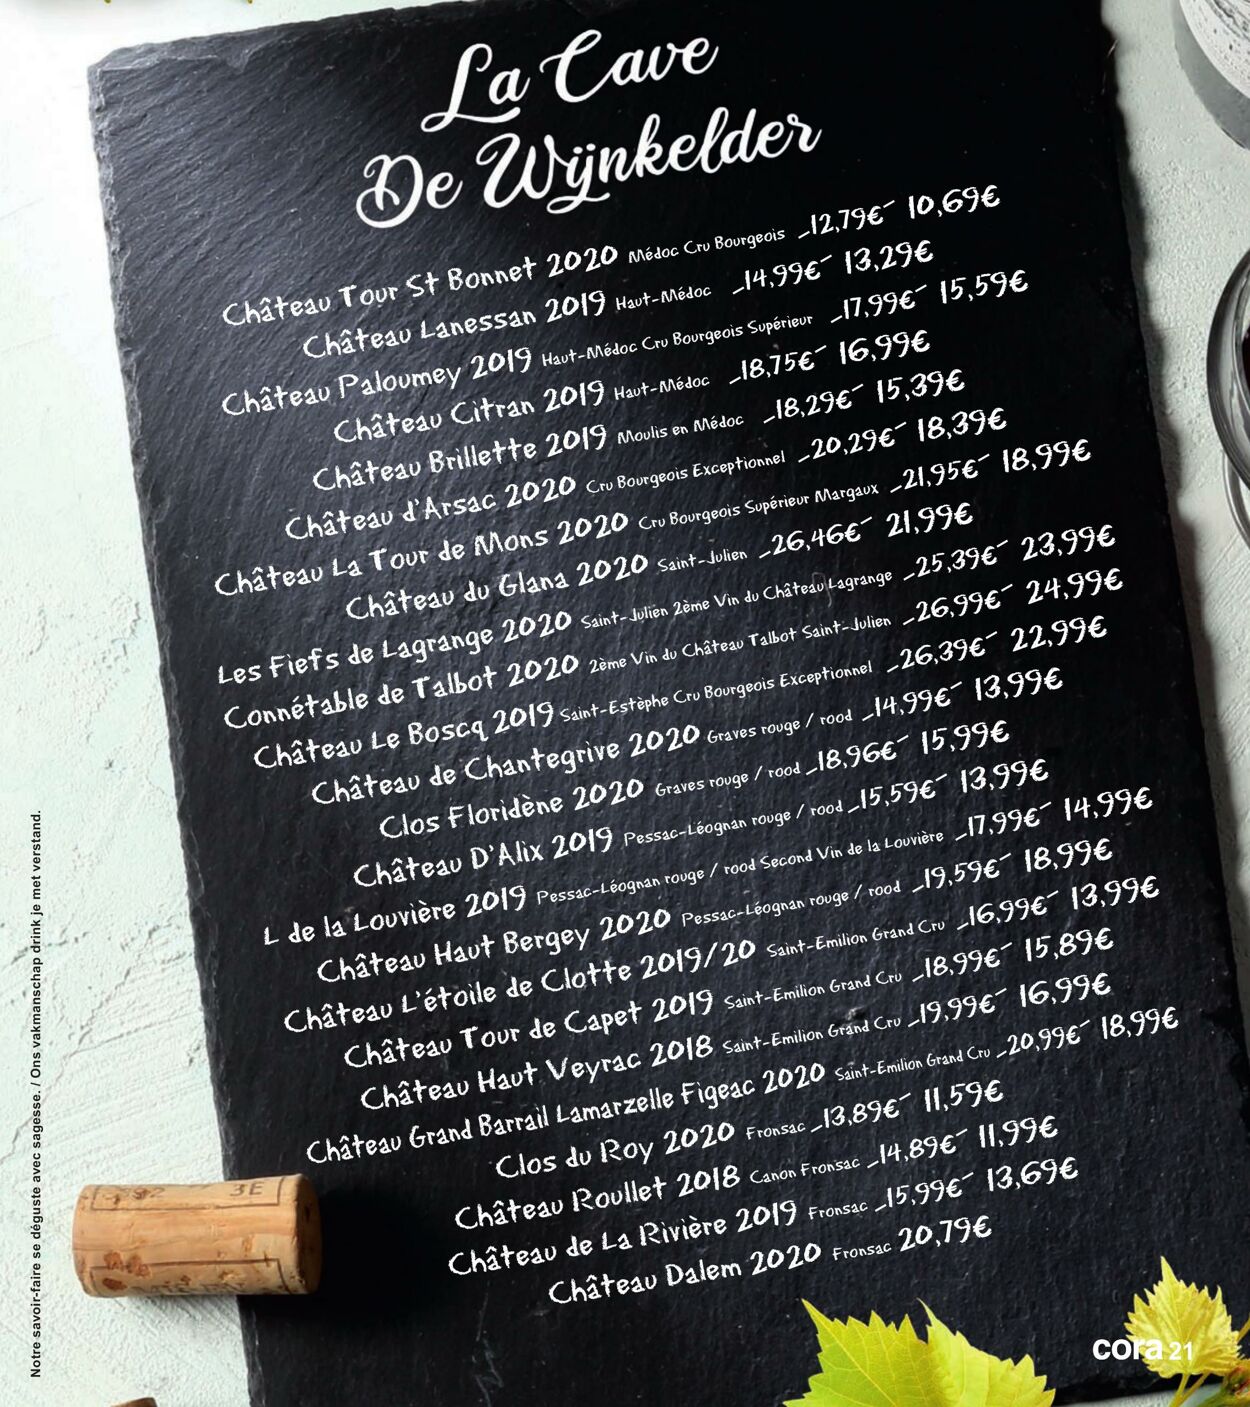 La Cave
De Wijnkelder
Château Tour St Bonnet 2020 Médoc Cru Bourgeois 12,79€ 10,69€
Château Lanessan 2019 Haut-Médoc 14,99€ 13,29€
Château Paloumey 2019 Haut-Médoc Cru Bourgeois Supérieur 17,99€ 15,59€
Château Citran 2019 Haut-Médoc 18,75€ 16,99€
Château Brillette 2019 Moulis en Médoc 18,29€ 15,39€
Château d'Arsac 2020 Cru Bourgeois Exceptionnel 20,29€ 18,39€
Château La Tour de Mons 2020 Cru Bourgeois Supérieur Margaux 21,95€ 18,99€
Château du Glana 2020 Saint-Julien 26,46€ 21,99€
Les Fiefs de Lagrange 2020 Saint-Julien 2ème Vin du Château Lagrange 25,39€ 23,99€
Connétable de Talbot 2020 2ème Vin du Château Talbot Saint-Julien 26,99€ 24,99€
Château Le Boscq 2019 Saint-Estèphe Cru Bourgeois Exceptionnel 26,39€ 22,99€
Château de Chantegrive 2020 Graves rouge / rood 14,99€ 13,99€
Clos Floridène 2020 Graves rouge / rood 18,96€ 15,99€
Château D'Alix 2019 Pessac-Léognan rouge / rood 15,59€ 13,99€
L de la Louvière 2019 Pessac-Léognan rouge / rood Second Vin de la Louvière 17,99€ 14,99€
Château Haut Bergey 2020 Pessac-Léognan rouge / rood 19,59€ 18,99€
Château L'étoile de Clotte 2019/20 Saint-Emilion Grand Cru 16,99€ 13,99€
Château Tour de Capet 2019 Saint-Emilion Grand Cru 18,99€ 15,89€
Château Haut Veyrac 2018 Saint-Emilion Grand Cru 19,99€ 16,99€
Château Grand Barrail Lamarzelle Figeac 2020 Saint-Emilion Grand Cru 20,99€ 18,99€
Clos du Roy 2020 Fronsac 13,89€ 11,59€
Château Roullet 2018 Canon Fronsac 14,89€ 11,99€
Château de La Rivière 2019 Fronsac 15,99€ 13,69€
Château Dalem 2020 Fronsac 20,79€
3E
Notre savoir-faire se déguste avec sagesse. / Ons vakmanschap drink je met verstand.
cora 21